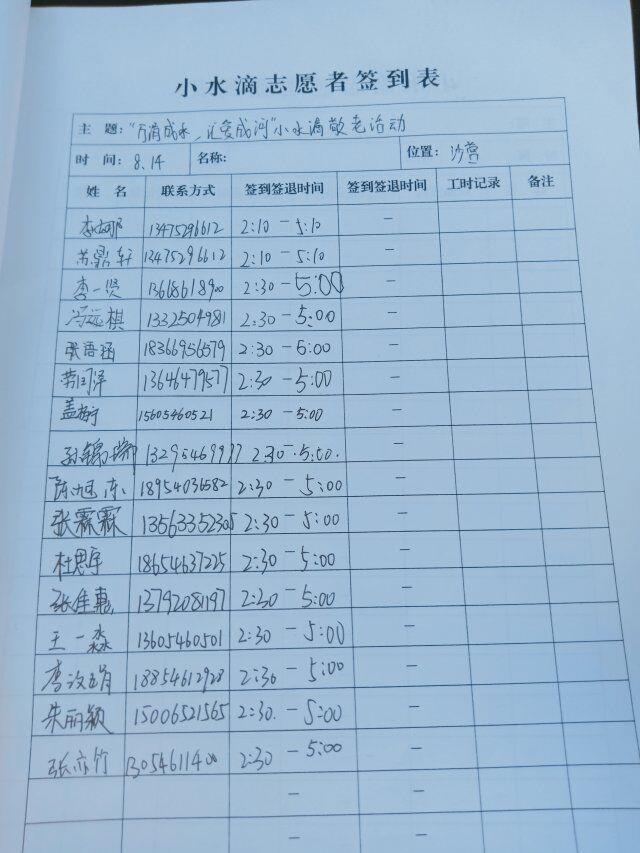 小水滴志愿者签到表
主 题: "万滴成水，汇爱成河"小水滴敬老活动
时 间: 8.14 名称: 位置: 沙营
姓 名 联系方式 签到签退时间 签到签退时间 工时记录 备注
李娜 13475296612 2:10 — 5:10 —
苏鼎轩 13475296612 2:10 — 5:10 —
李一贤 13618618900 2:30 — 5:00 —
冯远棋 1332504981 2:30 — 5:00 —
张语涵 18366956579 2:30 — 5:00 —
13646479577 2:30 — 5:00 —
15605460521 2:30 — 5:00 —
孙锦瑞 2:30 — 5:00. —
陈旭东 18954036582 2:30 — 5:00 —
张霖霖 13563352305 2:30 — 5:00 —
杜思宇 18654637225 2:30 — 5:00 —
张佳惠 13792081197 2:30 — 5:00 —
王一淼 13605460501 2:30 — 5:00 —
李汶娟 18854612928 2:30 — 5:00 —
朱丽颖 15006521565 2:30. — 5:00 —
张亦竹 13054611400 2:30 — 5:00 —
—
—